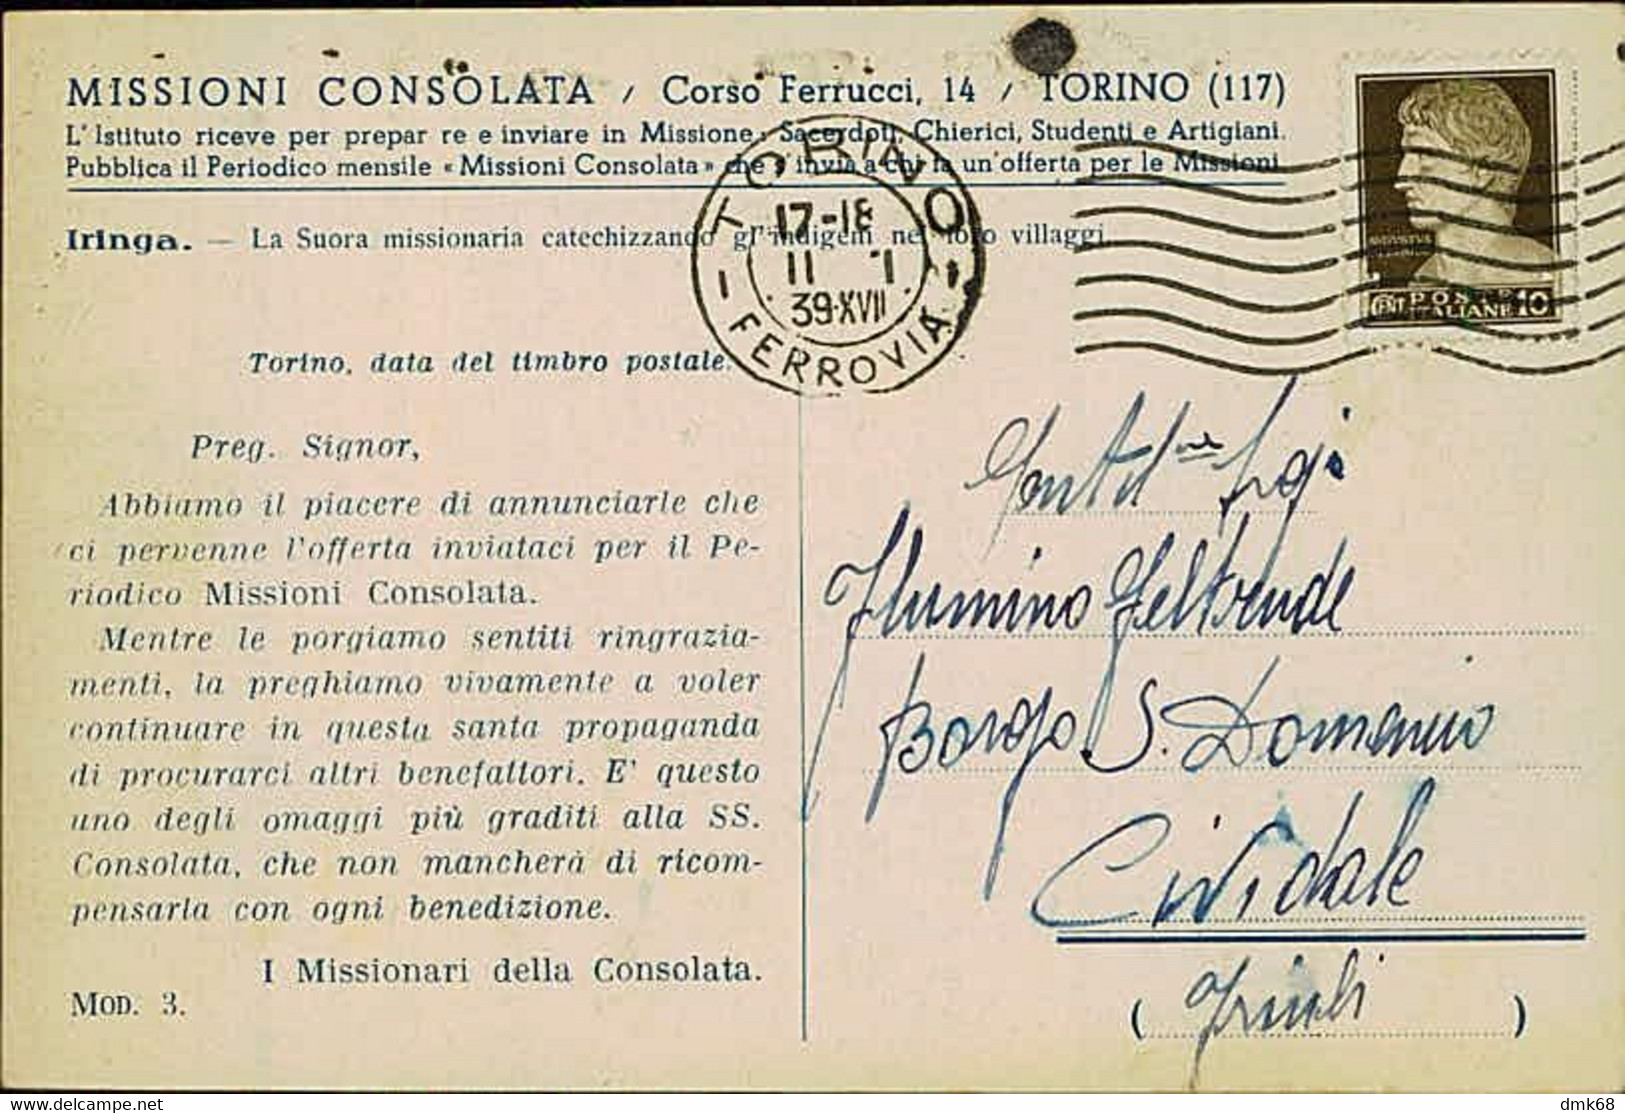 MISSIONI CONSOLATA / Corso Ferrucci, 14 / TORINO (117)
L'Istituto riceve per prepar re e inviare in Missione: Sacerdoti, Chierici, Studenti e Artigiani.
Pubblica il Periodico mensile «Missioni Consolata» che s'invia a chi fa un'offerta per le Missioni.
Iringa. — La Suora missionaria catechizzando gl'indigeni nei loro villaggi.
TORINO
17-18
11 1
39·XVII
FERROVIA
POSTE
CENT ITALIANE 10
Torino, data del timbro postale.
Preg. Signor,
Abbiamo il piacere di annunciarle che
ci pervenne l'offerta inviataci per il Pe-
riodico Missioni Consolata.
Mentre le porgiamo sentiti ringrazia-
menti, la preghiamo vivamente a voler
continuare in questa santa propaganda
di procurarci altri benefattori. E' questo
uno degli omaggi più graditi alla SS.
Consolata, che non mancherà di ricom-
pensarla con ogni benedizione.
I Missionari della Consolata.
MOD. 3.
Borgo S. Domenico
Cividale
(Friuli)
delcampe.net
dmk68